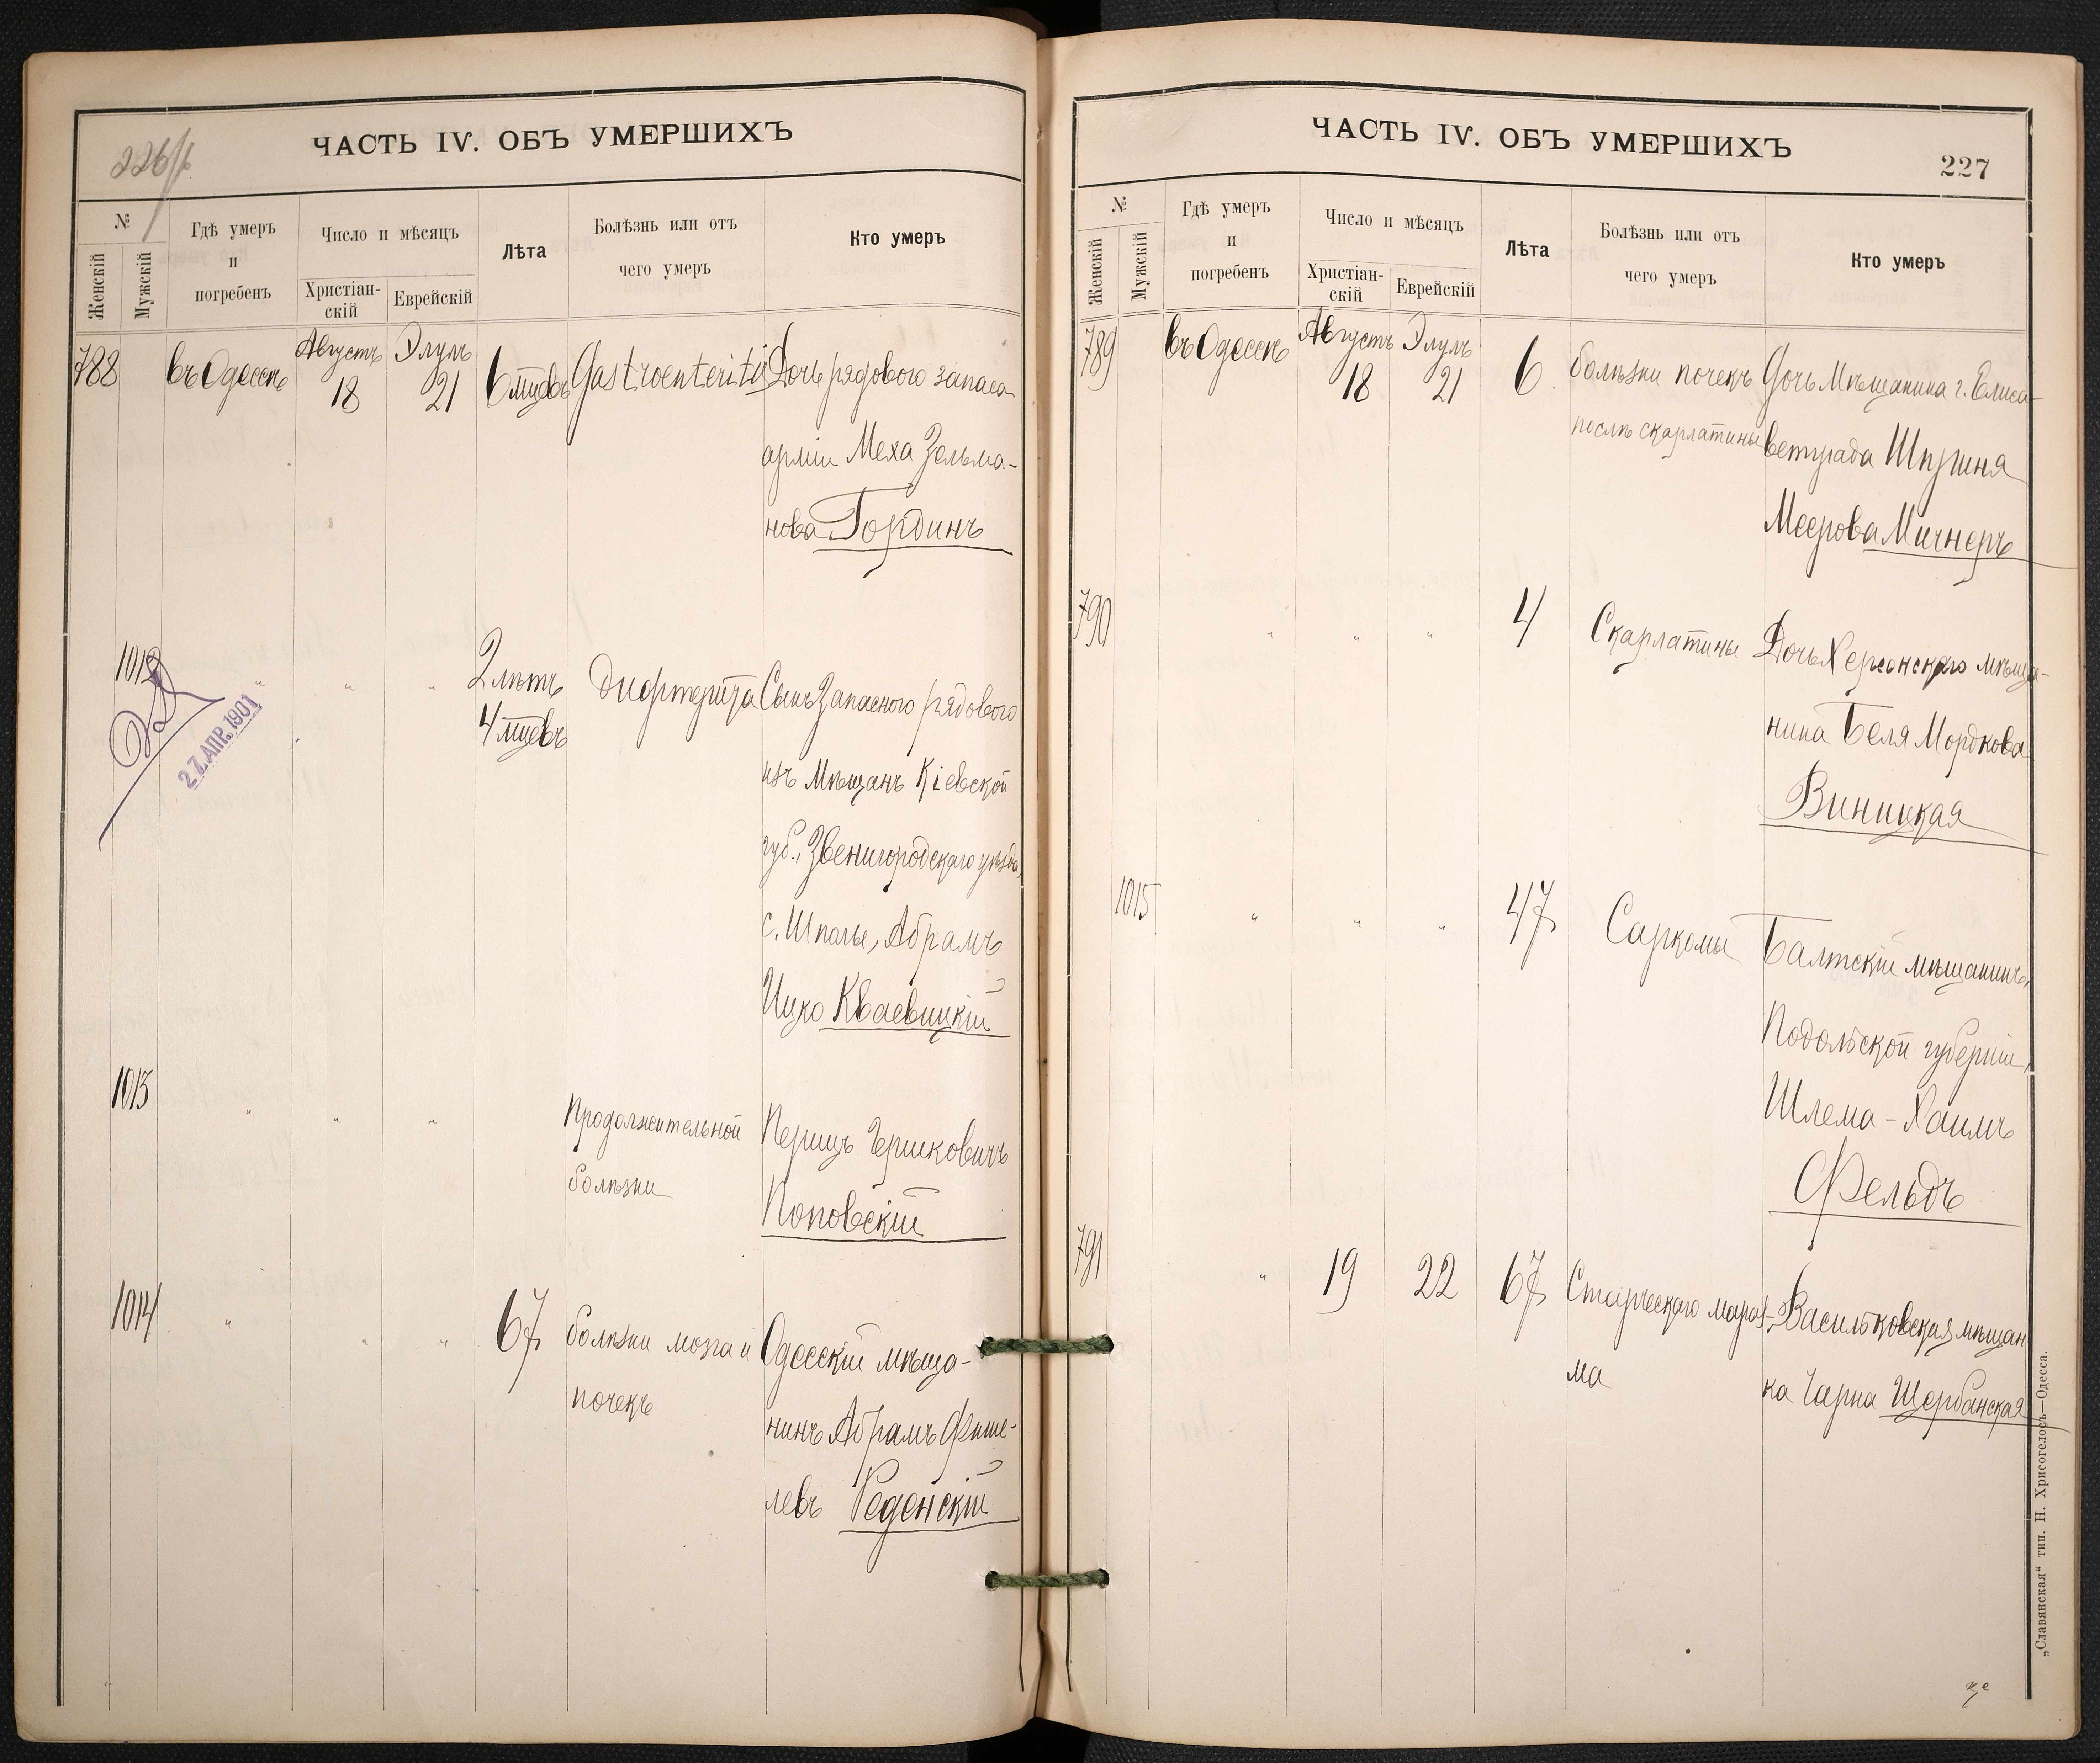 ЧАСТЬ IV. ОБЪ УМЕРШИХЪ
№
Женскій
Мужскій
Гдѣ умеръ
и
погребенъ
Число и мѣсяцъ
Христіан-
скій
Еврейскій
Лѣта
Болѣзнь или отъ
чего умеръ
Кто умеръ
788 въ Одессѣ Августъ 18 Элулъ 21 6 мцевъ Gastroenteritis Дочь рядового запаса
арміи Меха Зельма-
нова Гординъ
1012 " " " 2 лѣтъ 4 мцевъ Дифтерита Сынъ Запасного рядового
изъ Мѣщанъ Кіевской
губ., Звенигородскаго уѣзда,
с. Шполы, Абрамъ
Ицко Кваевицкій
27. АПР. 1901
1013 " " " Продолжительной Перицъ Гершковичъ
болѣзни Поповскій
1014 " " " 67 болѣзни мозга и Одесскій мѣща-
почекъ нинъ Абрамъ Фише-
левъ Реденскій
ЧАСТЬ IV. ОБЪ УМЕРШИХЪ
227
№
Женскій
Мужскій
Гдѣ умеръ
и
погребенъ
Число и мѣсяцъ
Христіан-
скій
Еврейскій
Лѣта
Болѣзнь или отъ
чего умеръ
Кто умеръ
789 въ Одессѣ Августъ 18 Элулъ 21 6 болѣзни почекъ Дочь Мѣщанина г. Елиса-
послѣ скарлатины ветграда
Меерова Мичнеръ
790 " " " 4 Скарлатины Дочь Херсонскаго мѣща-
нина Беля Мордкова
Виницкая
1015 " " " 47 Саркомы Балтскій мѣщанинъ,
Подольской губерніи,
Шлема-Хаимъ
Фельдъ
791 " 19 22 67 Старческаго мараз- Васильковская мѣщан-
ма ка Чарна Щербанская
„Славянская“ тип. Н. Хрисогелосъ—Одесса.